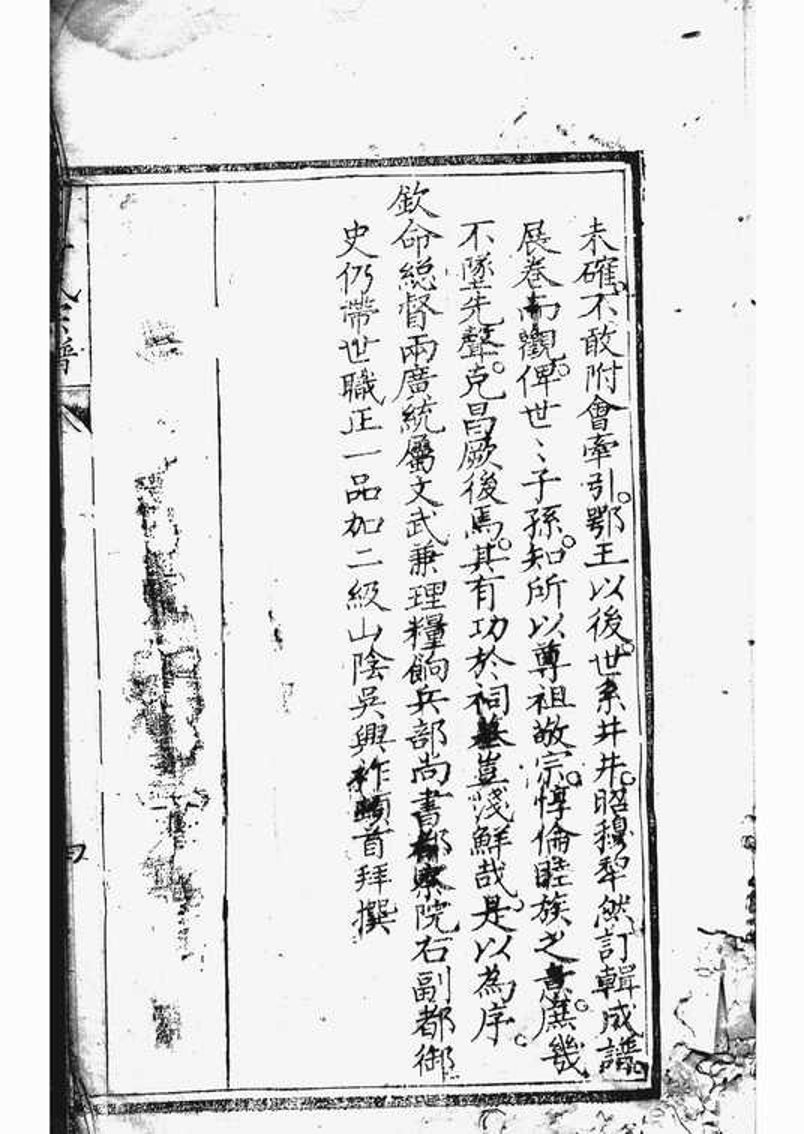 未確不敢附會牽引。鄂王以後。世系井井。昭穆犂然訂輯成譜。
展卷而觀。俾世〻子孫。知所以尊祖敬宗。惇倫睦族之意。庶幾
不墜先聲。克昌厥後焉。其有功於祠墓豈淺鮮哉。是以為序。
欽命總督兩廣統屬文武兼理糧餉兵部尚書都察院右副都御
史仍帶世職正一品加二級山陰吳興祚頓首拜撰
氏宗譜